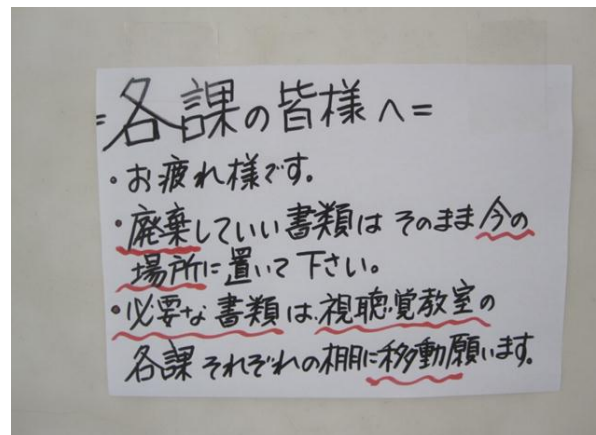 =各課の皆様へ=
・お疲れ様です。
・廃棄していい書類はそのまま今の
場所に置いて下さい。
・必要な書類は視聴覚教室の
各課それぞれの棚に移動願います。